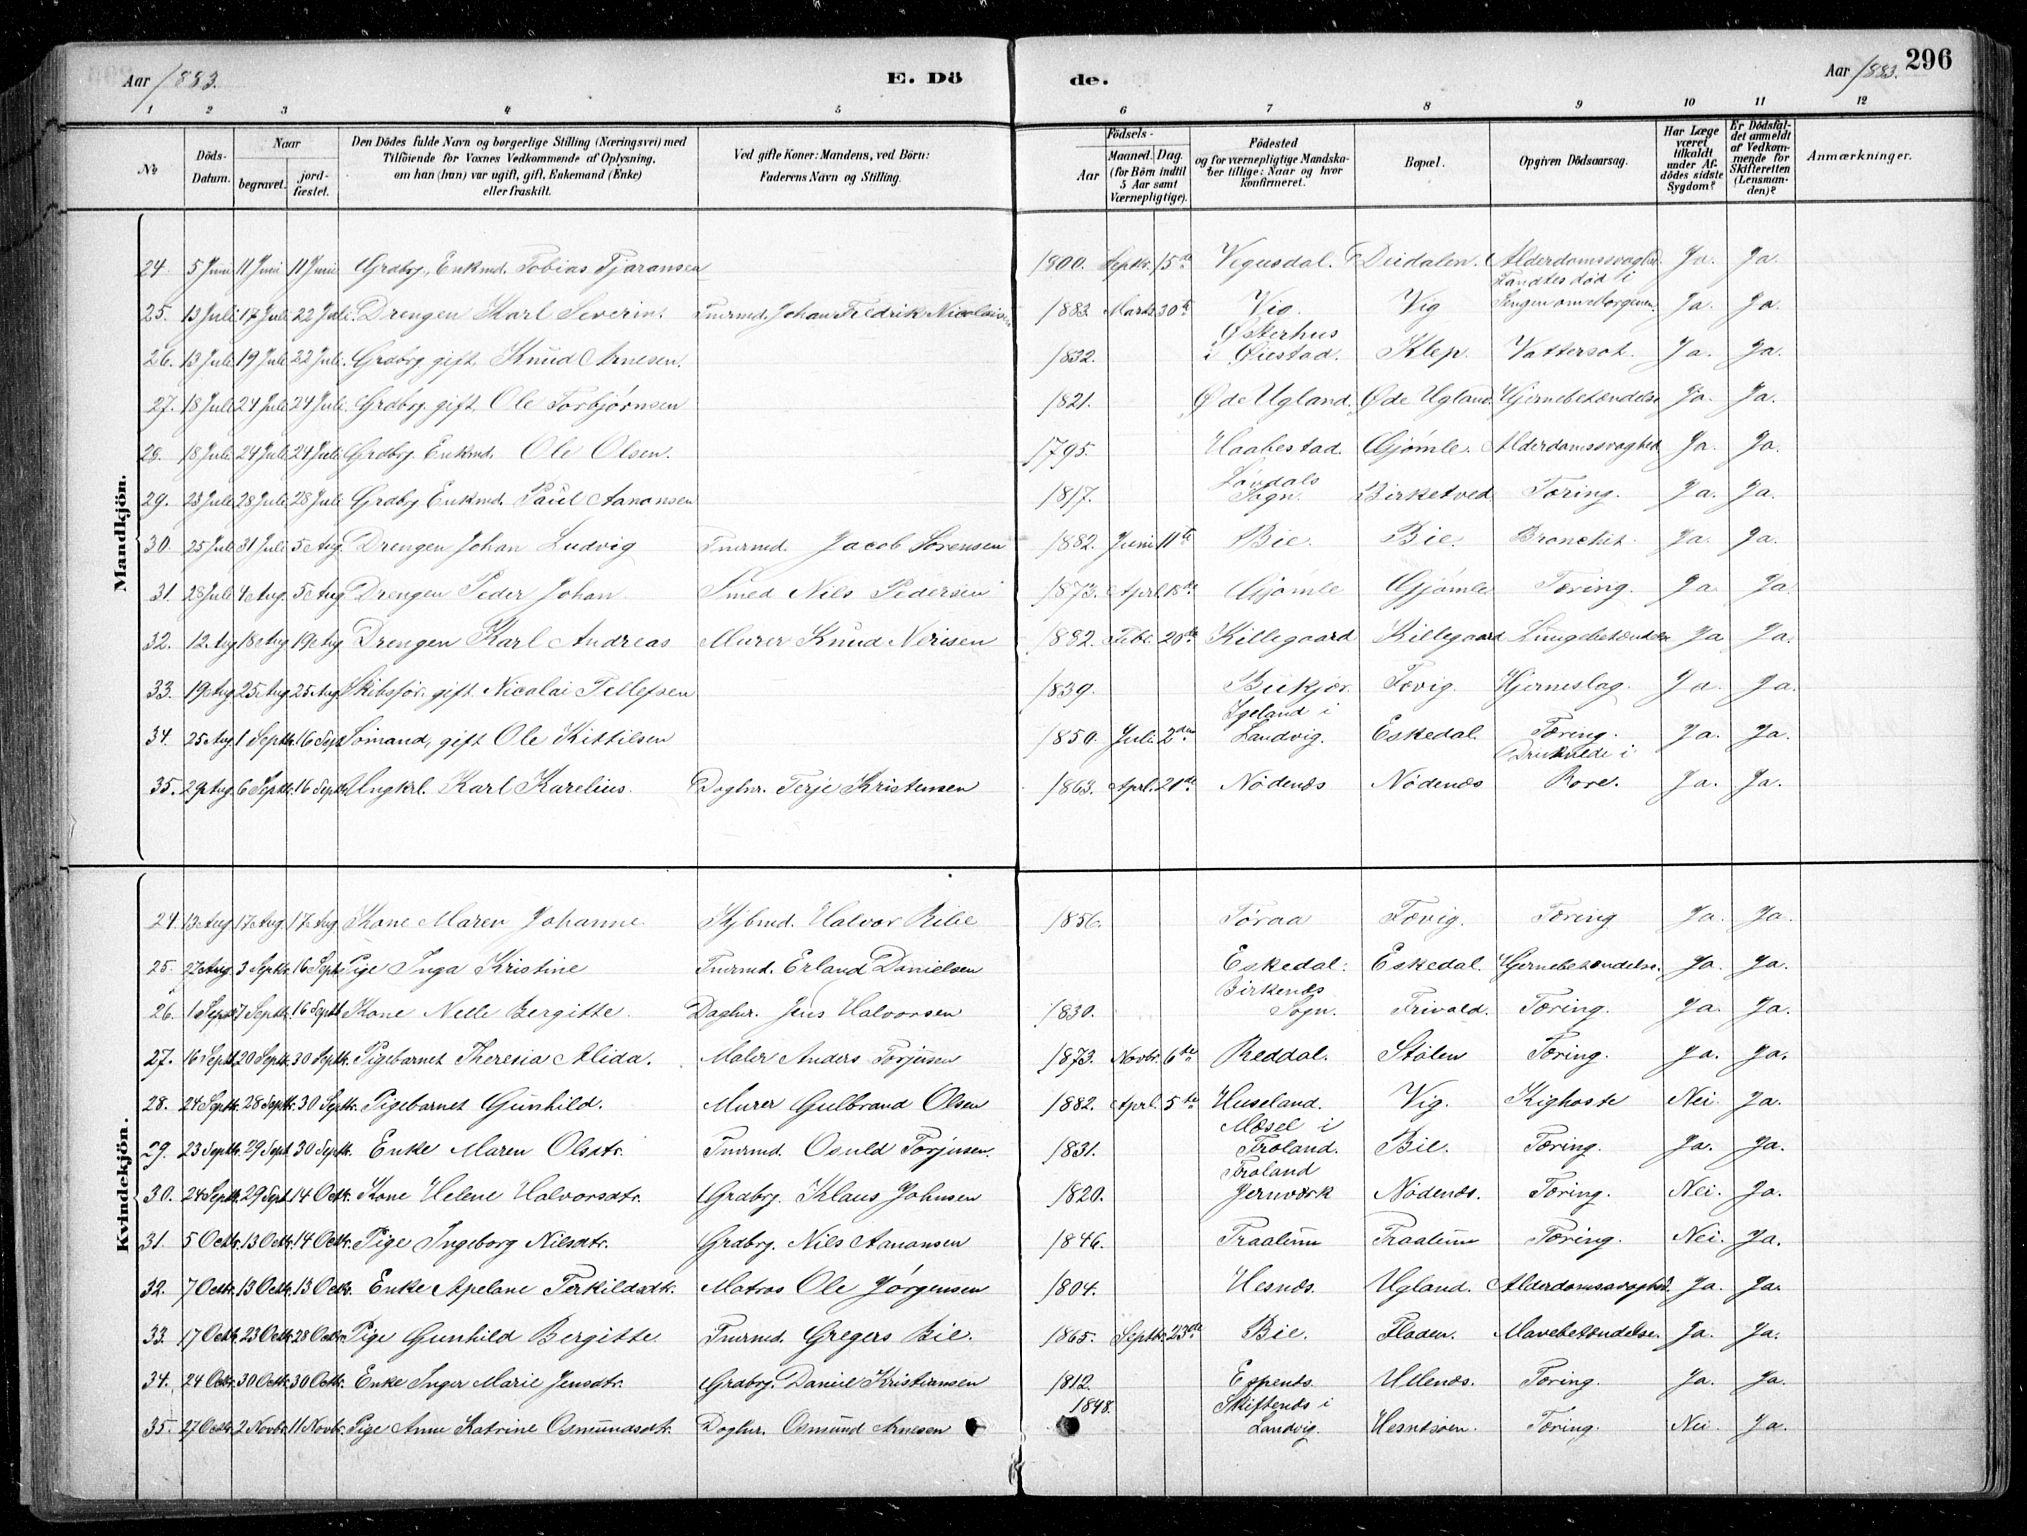 Aar 1883. E. Dö de. Aar 1883. 296
1 2 3 4 5 6 7 8 9 10 11 12
No Döds-Datum. Naar begravet. jordfæstet. Den Dödes fulde Navn og borgerlige Stilling (Næringsvei) med Tilföiende for Voxnes Vedkommende af Oplysning, om han (hun) var ugift, gift, Enkemand (Enke) eller fraskilt. Ved gifte Koner: Mandens, ved Börn: Faderens Navn og Stilling. Födsels- Aar Maaned. Dag. (for Börn indtil 5 Aar samt Værnepligtige). Födested og for værnepligtige Mandskaber tillige: Naar og hvor konfirmeret. Bopæl. Opgiven Dödsaarsag. Har Læge været tilkaldt under Afdödes sidste Sygdom? Er Dödsfaldet anmeldt af Vedkommende for Skifteretten (Lensmanden)? Anmærkninger.
Mandkjön.
24. 5 Juni 11 Juni 11 Juni Grdbrg. Enkmd. Tobias Tjaransen 1800. Septr. 15de Vegusdal. Diedalen. Alderdomssvaghed. Ja. Ja.
25. 13 Juli 17 Juli 22 Juli. Drengen Karl Severin. Tmrmd. Johan Fredrik Nicolaisen 1883. Marts 30te Vig. Vig Fandtes död i Sengen om Morgenen. Ja. Ja.
26. 13 Juli 19 Juli 22 Juli. Grdbrg. gift. Knud Arnesen. 1832. Østerhus i Øiestad. Klep. Vattersot. Ja. Ja.
27. 18 Juli 24 Juli 24 Juli. Grdbrg. gift. Ole Torbjørnsen 1821. Øde Ugland. Øde Ugland. Hjernebetændelse Ja. Ja.
28. 18 Juli 24 Juli 24 Juli Grdbrg. Enkmd. Ole Olsen. 1795. Haabestad. Gjømle. Alderdomssvaghed Ja. Ja.
29. 23 Juli 28 Juli 28 Juli Grdbrg Enkmd. Paul Aanonsen 1817. Løvdals Sogn. Birketved Tæring. Ja. Ja.
30. 25 Juli 31 Juli 5 Aug. Drengen Johan Ludvig Tmrmd. Jacob Sørensen 1882. Juni 11te Bie. Bie. Bronchit. Ja. Ja.
31. 28 Juli 4 Aug. 5 Aug Drengen Peder Johan Smed Nils Pedersen 1873. Apri. 18de Gjømle Gjømle Tæring. Ja. Ja.
32. 12 Aug 18 Aug 19 Aug Drengen Karl Andreas Murer Knud Nerisen 1882. Febr. 20de Killegaard Killegaard Lungebetændelse Ja Ja.
33. 19 Aug 25 Aug 25 Aug Skibsför. gift Nicolai Tellefsen 1839. Biekjær. Fævig. Hjerneslag. Ja. Ja.
34. 25 Aug 1 Septr. 16 Sept Sömand, gift Ole Kittilsen 1850. Juli 2den Igeland i Landvig. Eskedal. Tæring. Ja. Ja.
35. 29 Aug. 6 Septr. 16 Septr. Ungkrl. Karl Karelius. Daglnr. Terje Kristensen 1863. Aprl. 21de Nødenæs Nødenæs Druknede i Rore. Ja. Ja.
Kvindekjön.
24. 13 Aug 17 Aug. 17 Aug. Kone Maren Johanne Kjbmd. Halvor Ribe 1856. Töraa Fævig. Tæring Ja. Ja.
25. 27 Aug. 3 Septr. 16 Sept. Pige Inga Kristine Tmrmd. Erland Danielsen Eskedal. Eskedal. Hjernebetændelse. Ja. Ja.
26. 1 Sept 7 Septr. 16 Septr. Kone Nelle Bergitte. Daglnr. Jens Halvorsen 1830. Birkenæs Sogn. Frivold. Tæring. Ja. Ja.
27. 16 Septr. 20 Septr. 30 Septr. Pigebarnet Theresia Alida. Maler Anders Torjusen 1873. Novbr. 6te Reddal. Stölen Tæring. Ja. Ja.
28. 24 Septr. 28 Septr. 30 Septr. Pigebarnet Gunhild. Murer Gulbrand Olsen 1882. Aprl. 5te Huseland. Vig. Kighoste Nei. Ja.
29. 23 Septr. 29 Sept. 30 Septr. Enke Maren Olsdtr. Tmrmd. Osuld Torjusen. 1831. Mæsel i Froland. Bie. Tæring. Ja. Ja.
30. 24 Septr. 29 Sept. 14 Octr. Kone Helene Halvorsdtr. Grdbrg. Klaus Johnsen 1820. Froland Jernværk Nødenæs. Tæring. Nei. Ja.
31. 5 Octr. 13 Octr. 14 Octr. Pige Ingeborg Nilsdtr. Grdbrg. Nils Aanonsen 1846. Traalum Traalum Tæring. Nei. Ja.
32. 7 Octr. 13 Octr. 13 Octr. Enke Apelane Terkildsdtr. Matros Ole Jørgensen 1804. Hesnæs. Ugland. Alderdomssvaghed. Ja. Ja.
33. 17 Octr. 23 Octr. 28 Octr. Pige Gunhild Bergitte Tmrmd. Gregers Bie. 1865. Septr. 23de Bie. Fladen. Mavebetændelse. Ja. Ja.
34. 24 Octr. 30 Octr. 30 Octr. Enke Inger Marie Jensdtr. Grdbrg. Daniel Kristiansen 1812. Espenæs. Ullenæs. Tæring. Ja. Ja.
35. 27 Octr. 2 Novbr. 11 Novbr. Pige Anne Katrine Osmundsdtr. Daglnr. Osmund Arnesen 1848. Skiftenæs i Landvig. Hesnesøen. Tæring. Nei Ja.